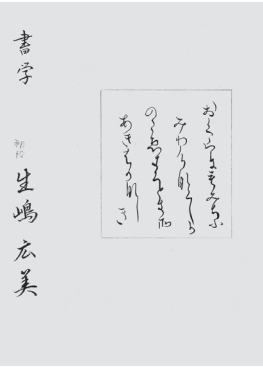 おくやまにもみちふ
みわけなくしか
のこゑきくときぞ
あきはかなしき
書学
生嶋広美